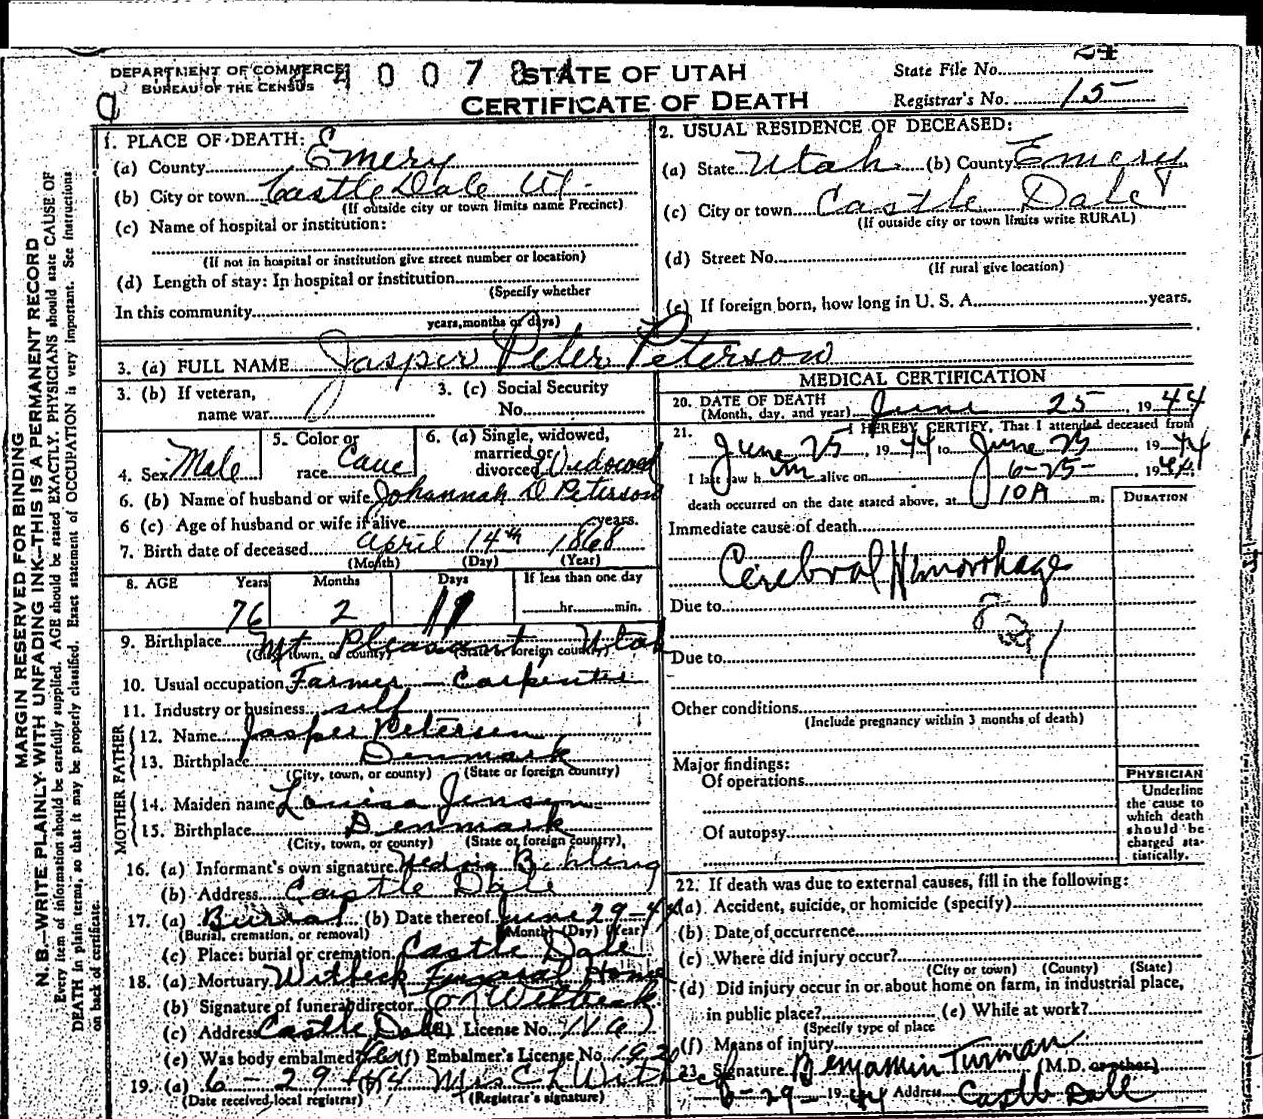 DEPARTMENT OF COMMERCE
BUREAU OF THE CENSUS
4 0 0 7 8
STATE OF UTAH
CERTIFICATE OF DEATH
State File No. 24
Registrar's No. 15
MARGIN RESERVED FOR BINDING
N. B.—WRITE PLAINLY WITH UNFADING INK—THIS IS A PERMANENT RECORD
Every item of information should be carefully supplied. AGE should be stated EXACTLY. PHYSICIANS should state CAUSE OF
DEATH in plain terms, so that it may be properly classified. Exact statement of OCCUPATION is very important. See instructions
on back of certificate.
1. PLACE OF DEATH:
(a) County Emery
(b) City or town Castle Dale Ut.
(If outside city or town limits name Precinct)
(c) Name of hospital or institution:
(If not in hospital or institution give street number or location)
(d) Length of stay: In hospital or institution
(Specify whether
In this community
years, months or days)
2. USUAL RESIDENCE OF DECEASED:
(a) State Utah (b) County Emery
(c) City or town Castle Dale
(If outside city or town limits write RURAL)
(d) Street No.
(If rural give location)
(e) If foreign born, how long in U. S. A. years.
3. (a) FULL NAME Jasper Peter Peterson
3. (b) If veteran,
name war
3. (c) Social Security
No.
4. Sex Male
5. Color or
race Cauc
6. (a) Single, widowed,
married or
divorced Widowed
6. (b) Name of husband or wife Johannah D Peterson
6 (c) Age of husband or wife if alive years.
7. Birth date of deceased April 14th 1868
(Month) (Day) (Year)
8. AGE Years Months Days If less than one day
76 2 11 hr. min.
9. Birthplace Mt Pleasant Utah
(City, town, or county) (State or foreign country)
10. Usual occupation Farmer — Carpenter
11. Industry or business self
FATHER
12. Name Jasper Petersen
13. Birthplace Denmark
(City, town, or county) (State or foreign country)
MOTHER
14. Maiden name Louisa Jensen
15. Birthplace Denmark
(City, town, or county) (State or foreign country)
16. (a) Informant's own signature
(b) Address Castle Dale
17. (a) Burial (b) Date thereof June 29-44
(Burial, cremation, or removal) (Month) (Day) (Year)
(c) Place: burial or cremation Castle Dale
18. (a) Mortuary Witbeck Funeral Home
(b) Signature of funeral director C L Witbeck
(c) Address Castle Dale (d) License No.
(e) Was body embalmed Yes (f) Embalmer's License No.
19. (a) 6-29-44 Mrs C L Witbeck
(Date received local registrar) (Registrar's signature)
MEDICAL CERTIFICATION
20. DATE OF DEATH
(Month, day, and year) June 25, 1944
21. I HEREBY CERTIFY, That I attended deceased from
June 25, 1944 to June 25 1944
I last saw him alive on 6-25- 1944
death occurred on the date stated above, at 10A m.
DURATION
Immediate cause of death
Cerebral Hemorrhage
Due to
Due to
Other conditions
(Include pregnancy within 3 months of death)
Major findings:
Of operations
Of autopsy
PHYSICIAN
Underline
the cause to
which death
should be
charged sta-
tistically.
22. If death was due to external causes, fill in the following:
(a) Accident, suicide, or homicide (specify)
(b) Date of occurrence
(c) Where did injury occur?
(City or town) (County) (State)
(d) Did injury occur in or about home on farm, in industrial place,
in public place? (e) While at work?
(Specify type of place
(f) Means of injury
23. Signature Benjamin Turman (M.D. or other)
6-29-1944 Address Castle Dale